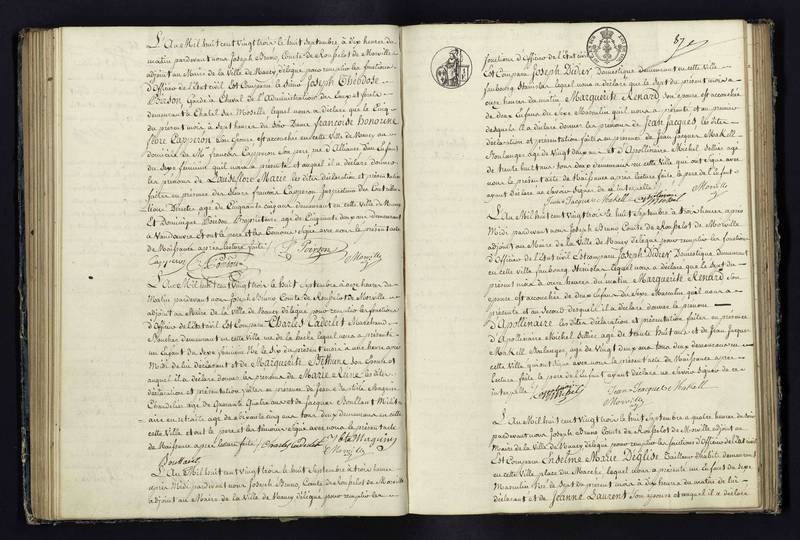 L'An Mil huit cent Vingt trois le huit Septembre à dix heures du
matin pardevant nous Joseph Bruno, Comte de Rousselot de Morville
adjoint au Maire de la Ville de Nancy, délégué pour remplir les fonctions
d'Officier de l'Etat civil Est Comparu le Sieur Joseph Théodose
Poirson Garde à Cheval de l'Administration des Eaux et forêts
demeurant à Chatel sur Moselle lequel nous a déclaré que le Cinq
du présent mois à Sept heures du Soir Dame françoise honorine
flore Capperon Son Epouse est accouchée en cette Ville de Nancy au
domicile de M. françois Capperon Son père rue d'Alliance d'un Enfant
du Sexe féminin qu'il nous a présenté et auquel il a déclaré donner
les prénoms de flore Marie les dites déclaration et présentation
faites en présence des Sieurs francois Capperon Inspecteur des Contributions
Directes agé de Cinquante Cinq ans demeurant en cette Ville de Nancy
Et Dominique Poirson Propriétaire agé de Cinquante deux ans demeurant
à Vandoeuvre et ont le père et les Témoins Signé avec nous le présent acte
de Naissance après lecture faite
Capperon Poirson Poirson Morville
L'An Mil huit cent Vingt trois le huit Septembre à onze heures du
Matin pardevant nous Joseph Bruno Comte de Rousselot de Morville
adjoint au Maire de la Ville de Nancy délégué pour remplir les fonctions
d'Officier de l'Etat civil Est Comparu Charles Caderlet Marchand
Boucher demeurant en cette Ville rue de la hache lequel nous a présenté
un Enfant du Sexe féminin Né le Six du présent mois à une heure après
Midi de lui déclarant et de Marguerite Béthune Son Epouse et
auquel il a déclaré donner les prénoms de Marie Anne les dites
déclaration et présentation faites en présence de Jean Baptiste Maguin
Chandelier agé de Quarante Quatre ans et de Jacques Bouttant Militaire
en retraite agé de Soixante cinq ans tous deux demeurans en cette
Ville et ont le père et les témoins Signé avec nous le présent acte
de Naissance après lecture faite Charles Caderlet Maguin
Bouttant Morville
L'An Mil huit cent Vingt trois le huit Septembre à trois heures
après Midi pardevant nous Joseph Bruno, Comte de Rousselot de Morville
adjoint au Maire de la Ville de Nancy délégué pour remplir les
87
fonctions d'Officier de l'Etat civil
Est Comparu Joseph Didier Domestique demeurant en cette Ville
faubourg Stanislas lequel nous a déclaré que le Sept du présent mois à
onze heures du matin Marguerite Renard Son épouse est accouchée
de deux Enfans du Sexe Masculin qu'il nous a présenté et au premier
desquels il a déclaré donner les prénoms de Jean Jacques les dites
déclaration et présentation faites en présence de Jean Jacques Makell
Boulanger agé de Vingt deux ans et d'Apollinaire Michel Sellier agé
de trente huit ans tous deux demeurans en cette Ville qui ont Signé avec
nous le présent acte de Naissance après lecture faite, le père de l'Enfant
ayant déclaré ne Savoir Signer de ce interpellé
Jean Jacque Makell Morville
L'An Mil huit cent Vingt trois le huit Septembre à trois heures après
Midi pardevant nous Joseph Bruno Comte de Rousselot de Morville
adjoint au Maire de la Ville de Nancy délégué pour remplir les fonctions
d'Officier de l'Etat civil Est comparu Joseph Didier Domestique demeurant
en cette Ville faubourg Stanislas lequel nous a déclaré que le Sept du
présent mois à onze heures du matin Marguerite Renard Son
épouse est accouchée de deux Enfans du Sexe Masculin qu'il nous a
présenté et au Second desquels il a déclaré donner le prénom
d'Apollinaire les dites déclaration et présentation faites en présence
d'Apollinaire Michel Sellier agé de trente huit ans et de Jean Jacques
Makell Boulanger, agé de Vingt deux ans tous deux demeurans en
cette Ville qui ont Signé avec nous le présent acte de Naissance après
lecture faite, le père de l'Enfant ayant déclaré ne Savoir Signer de ce
interpellé Jean Jacque Makell
Morville
L'An Mil huit cent Vingt trois le huit Septembre à quatre heures du Soir
pardevant nous Joseph Bruno Comte de Rousselot de Morville adjoint au
Maire de la Ville de Nancy délégué pour remplir les fonctions d'Officier de l'Etat civil
Est Comparu Anselme Marie Déglise Tailleur d'habits demeurant
en cette Ville place du Marché lequel nous a présenté un Enfant du Sexe
Masculin Né le Sept du présent mois à dix heures du matin de lui
déclarant et de Jeanne Laurent Son épouse et auquel il a déclaré